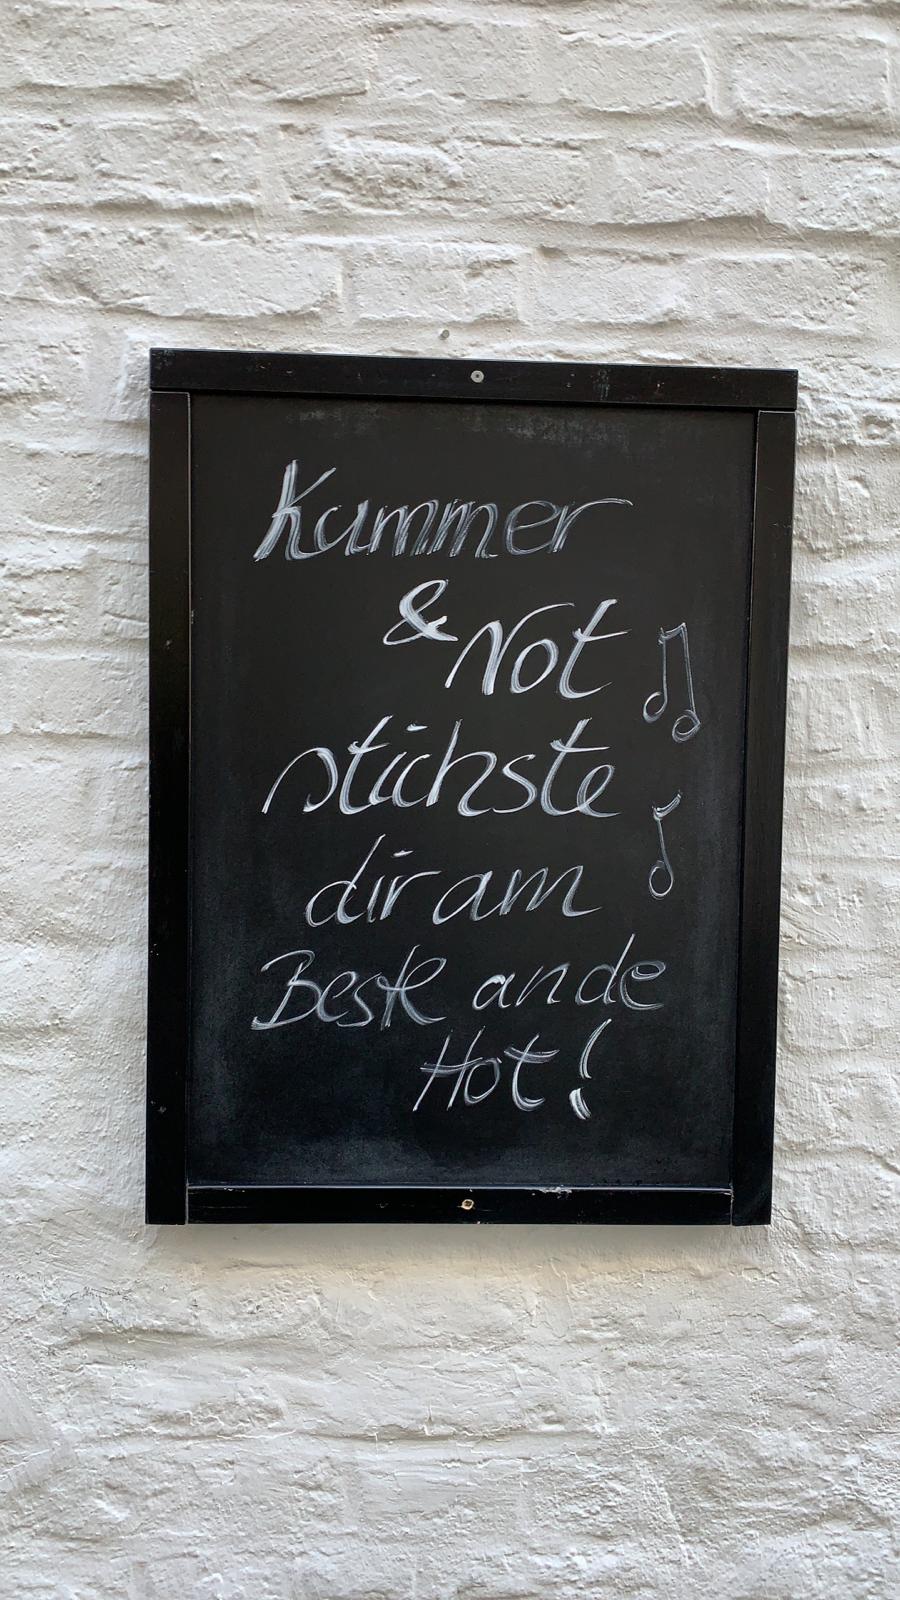 Kummer
& Not
stichste
dir am
Beste ande
Hot!